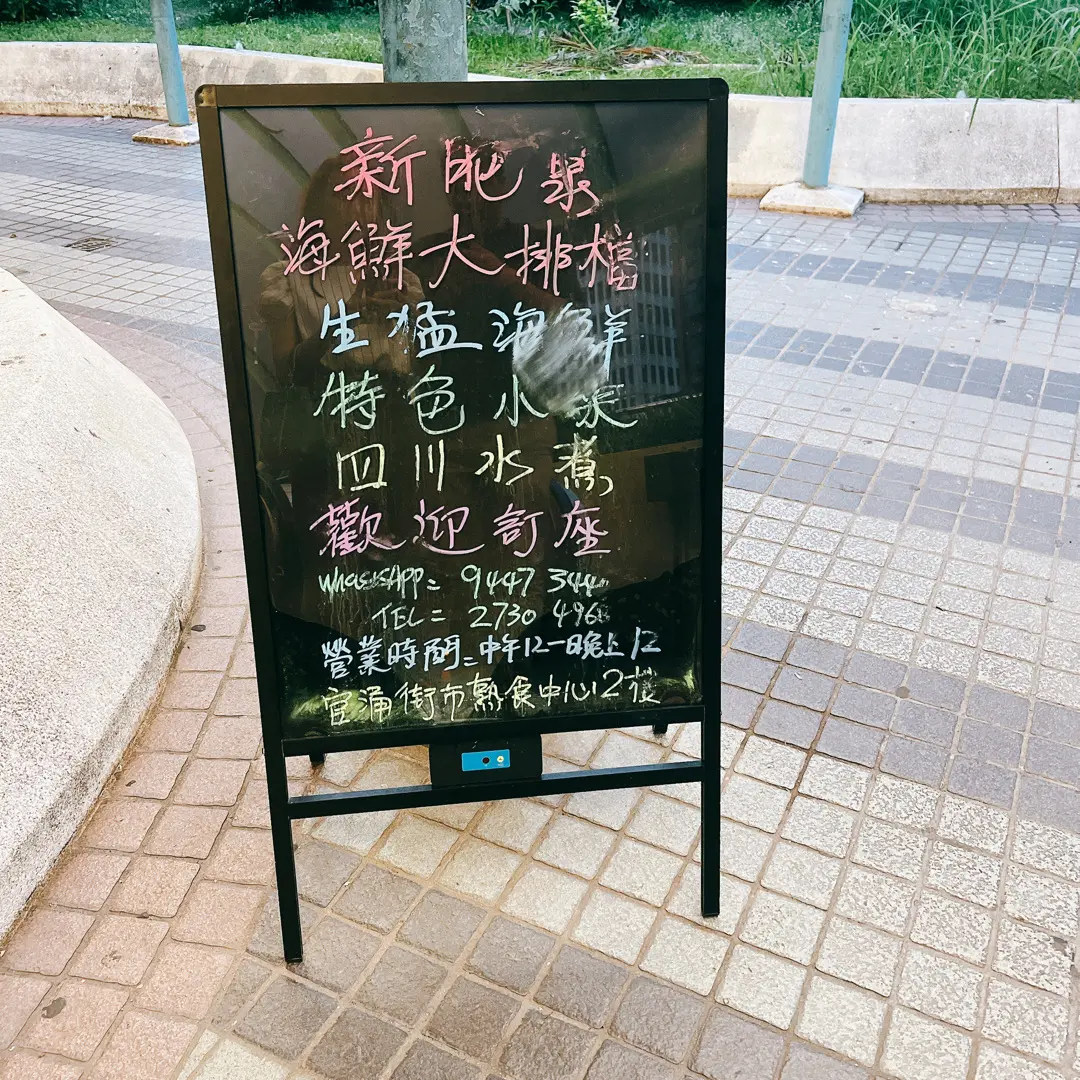 新肥泉
海鮮大排檔
生猛海鮮
特色小菜
四川水煮
歡迎訂座
WhatsAPP= 9447 344
TEL= 2730 496
營業時間=中午12-晚上12
官涌街市熟食中心2樓